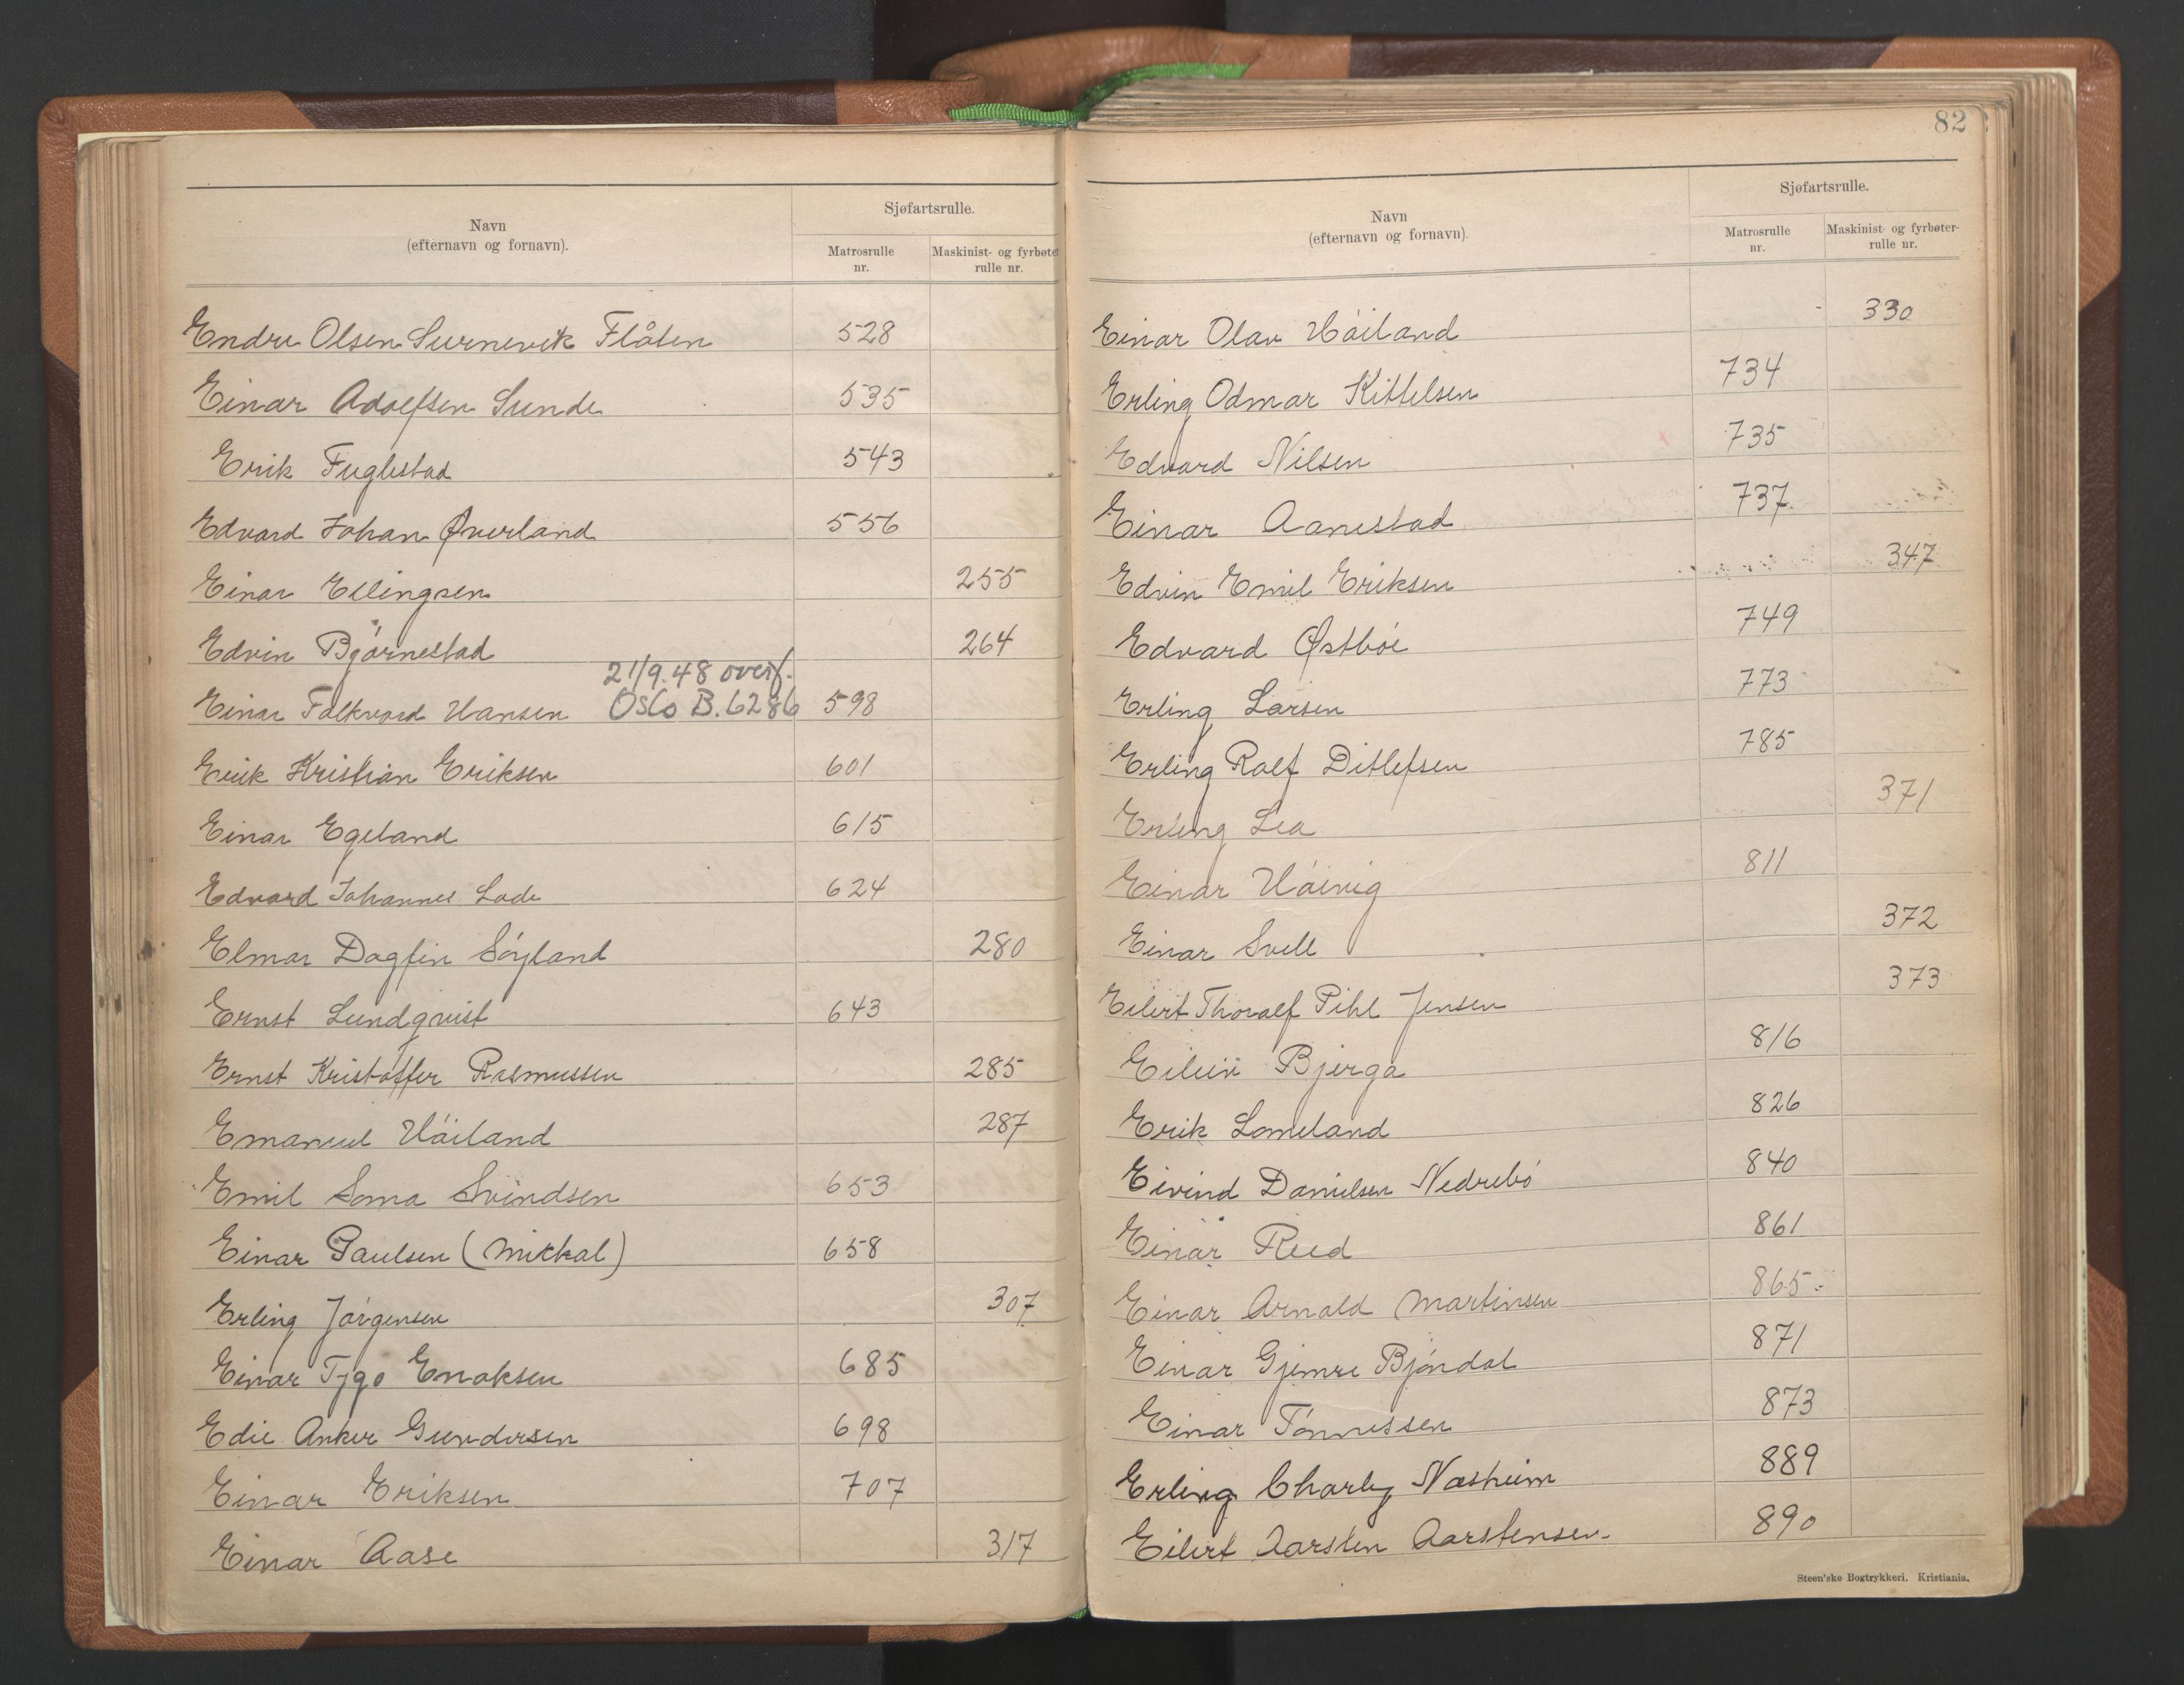 Navn
(efternavn og fornavn).
Sjøfartsrulle.
Matrosrulle
nr.
Maskinist- og fyrbøte
rulle nr.
Endre Olsen Flåten 528
Einar Adolfsen Sunde 535
Erik Fuglestad 543
Edvard Johan Øverland 556
Einar Ellingsen 255
Edvin Bjørnestad 264
21/9.48 overf.
Einar Falkvard Hansen Oslo B.6286 598
Erik Kristian Eriksen 601
Einar Egeland 615
Edvard Johannes Lode 624
Elmar Dagfin Söyland 280
Ernst Lundqvist 643
Ernst Kristoffer Rasmussen 285
Emanuel Håiland 287
Emil Soma Svindsen 653
Einar Paulsen (Mikkal) 658
Erling Jörgensen 307
Einar Tygo Enoksen 685
Edie Anker Gundersen 698
Einar Eriksen 707
Einar Aase 317
82
Navn
(efternavn og fornavn).
Sjøfartsrulle.
Matrosrulle
nr.
Maskinist- og fyrbøter-
rulle nr.
Einar Olav Håiland 330
Erling Odmar Kittelsen 734
Edvard Nilsen 735
Einar Aanestad 737
Edvin Emil Eriksen 347
Edvard Østböe 749
Erling Larsen 773
Erling Ralf Ditlefsen 785
Erling Lea 371
Einar Håivig 811
Einar Svell 372
Eilert Thoralf Pihl Jensen 373
Bjerga 816
Erik Lomeland 826
Eivind Danielsen Nedrebö 840
Einar Reed 861
Einar Arnold Martinsen 865
Einar Gjemre Bjöndal 871
Einar Tönnessen 873
Erling Charly Næsheim 889
Eilert Karsten Aarstensen. 890
Steen'ske Bogtrykkeri. Kristiania.